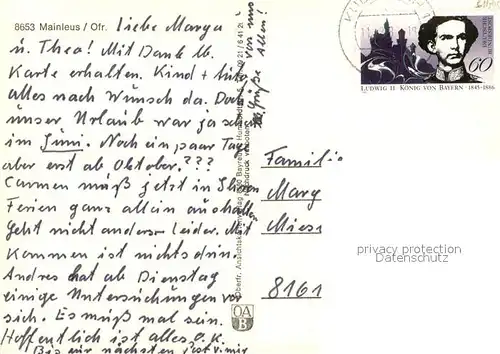 8653 Mainleus / Ofr.
Liebe Marga
u. Theo! Mit Dank lb.
Karte erhalten. Kind +
alles nach Wunsch da. Doch
unser Urlaub war ja schon
im Juni. Noch ein paar Tage
aber erst ab Oktober.???
Carmen muß jetzt in
Ferien ganz allein aushalten
Geht nicht anders leider. Mit
Kommen ist nichts drin.
Andres hat ab Dienstag
einige Untersuchungen vor
sich. Es muß mal sein.
Hoffentlich ist alles o.k.
Bis zur nächsten
von uns
Grüße Allen!
Nachdruck verboten
OAB
60
LUDWIG II · KÖNIG VON BAYERN · 1845-1886
DEUTSCHE BUNDESPOST
Familie
Marg
Miese
8161
privacy protection
Datenschutz